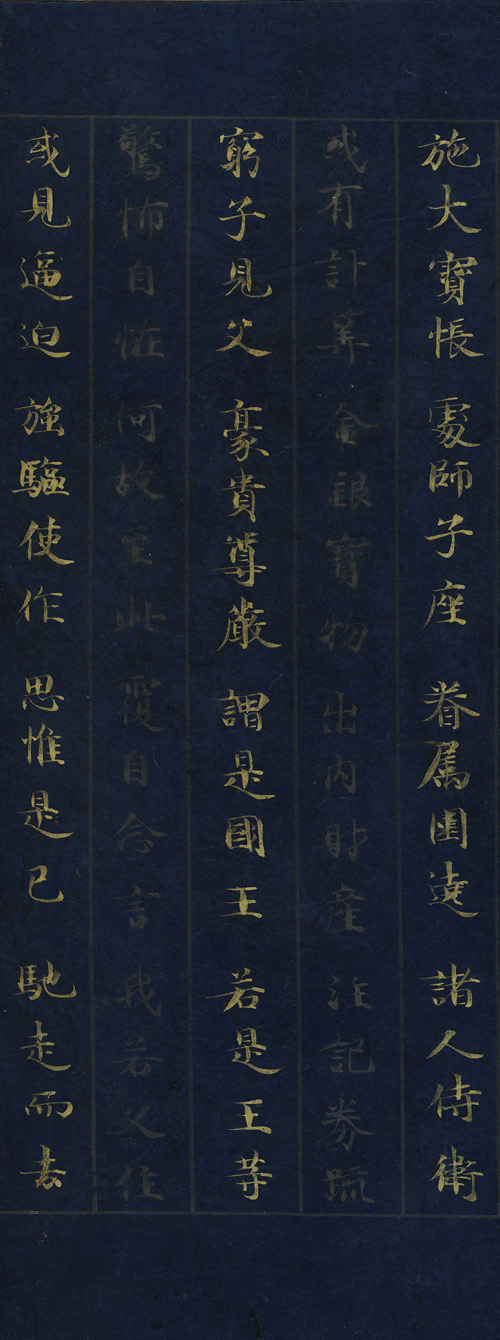 施大寶帳 處師子座 眷属圍遶 諸人侍衛
或有計筭 金銀寶物 出内財産 注記券疏
窮子見父 豪貴尊嚴 謂是國王 若是王等
驚怖自恠 何故至此 覆自念言 我若久住
或見逼迫 強驅使作 思惟是已 馳走而去